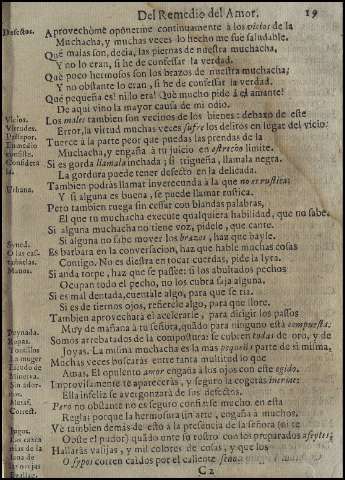 Del Remedio del Amor. 19
Defectos. Aprovechòme oponerme continuamente à los vicios de la
Muchacha, y muchas veces lo hecho me fue saludable.
Què malas son, decia, las piernas de nuestra muchacha,
Y no lo eran, si he de confessar la verdad.
Què poco hermosos son los brazos de nuestra muchacha;
Y no obstante lo eran, si he de confessar la verdad.
Què pequeña es! ni lo era! Què mucho pide à el amante!
De aqui vino la mayor causa de mi odio.
Vicios. Los males tambien son vecinos de los bienes: debaxo de este
Virtudes. Error, la virtud muchas veces sufre los delitos en lugar del vicio:
Tuerce à la parte peor que puedas las prendas de la
En medio Muchacha, y engaña à tu juicio en estrecho limite.
consiste. Si es gorda llamala inchada; si trigueña, llamala negra.
La gordura puede tener defecto en la delicada.
Urbana. Tambien podràs llamar inverecunda à la que no es rustica:
Y si alguna es buena, se puede llamar rustica.
Pero tambien ruega sin cessar con blandas palabras,
El que tu muchacha execute qualquiera habilidad, que no sabe.
Si alguna muchacha no tiene voz, pidele, que cante.
Si alguna no sabe mover los brazos, haz que bayle.
Es barbara en la conversacion, haz que hable muchas cosas
Contigo. No es diestra en tocar cuerdas, pide la lyra.
Manos. Si anda torpe, haz que se passee: si los abultados pechos
Ocupan todo el pecho, no los cubra faja alguna.
Si es mal dentada, cuentale algo, para que se ria.
Si es de tiernos ojos, refierele algo, para que llore.
Tambien aprovecharà el acelerarte, para dirigir los passos
Peynada. Muy de mañana à tu señora, quãdo para ninguno està compuesta:
Ropas. Somos arrebatados de la compostura: se cubren todas de oro, y de
Tontillos Joyas. La misma muchacha es la mas pequeña parte de si misma,
La muger Muchas veces buscaràs entre tanta multitud lo que
Escudo de Amas. El opulento amor engaña à los ojos con este egido.
Minerva. Improvisamente te apareceràs, y seguro la cogeràs inerme:
Sin ador- Ella infeliz se avergonzarà de sus defectos.
nos. Pero no obstante no es seguro confiarse mucho en esta
Correct. Regla: porque la hermosura sin arte, engaña à muchos.
Ve tambien demàs de esto à la presencia de la señora (ni te
Obste el pudor) quãdo unte su rostro con los preparados afeytes:
Hallaràs vasijas, y mil colores de cosas, y que los
O sypos corren caidos por el caliente seno
C2